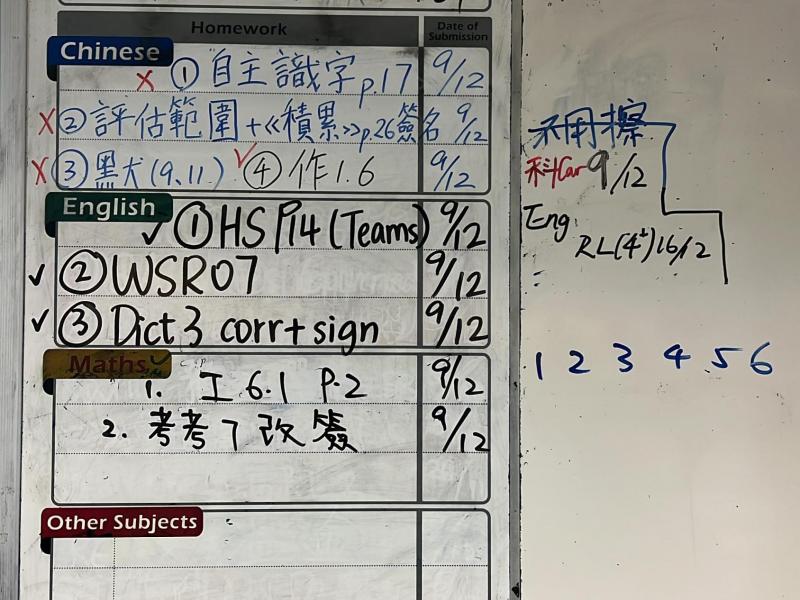 Homework
Date of Submission
Chinese
① 自主識字 p.17 9/12
② 評估範圍+《積累》p.26簽名 9/12
③ 黑犬(9、11) ④ 作1.6 9/12
English
① HS P14 (Teams) 9/12
② WSR07 9/12
③ Dict 3 corr + sign 9/12
Maths
1. 工 6.1 P.2 9/12
2. 考考7 改簽 9/12
Other Subjects
不用擦
科Car 9/12
Eng
RL(4²) 16/12
1 2 3 4 5 6